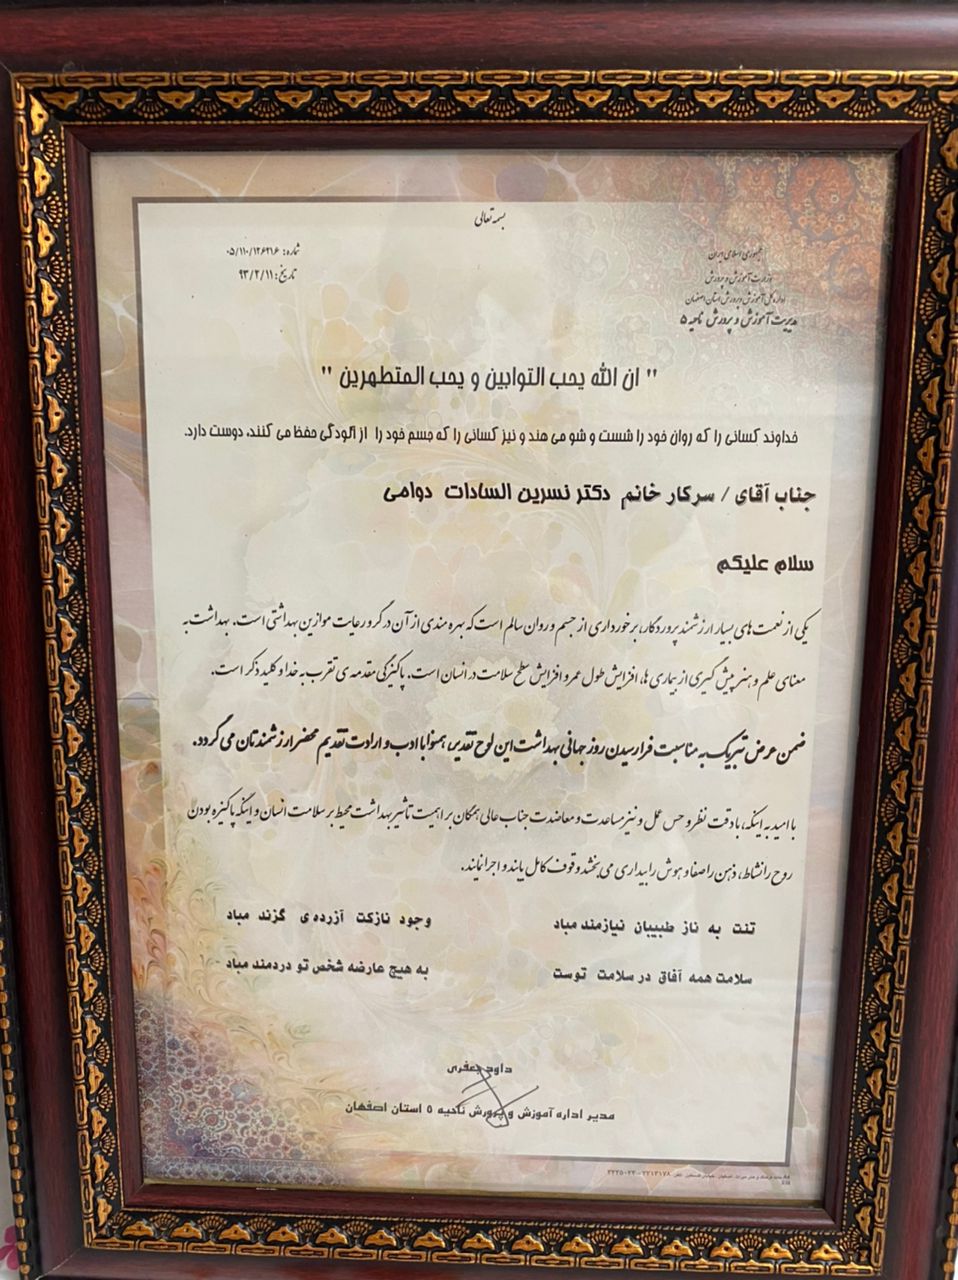 بسمه تعالی
جمهوری اسلامی ایران
وزارت آموزش و پرورش
اداره کل آموزش و پرورش استان اصفهان
مدیریت آموزش و پرورش ناحیه ۵
شماره: ۰۵/۱۱۰/۱۲۶۲۱۶
تاریخ: ۹۳/۲/۱۱
" ان الله یحب التوابین و یحب المتطهرین "
خداوند کسانی را که روان خود را شست و شو می هند و نیز کسانی را که جسم خود را از آلودگی حفظ می کنند، دوست دارد.
جناب آقای / سرکار خانم دکتر نسرین السادات دوامی
سلام علیکم
یکی از نعمت های بسیار ارزشمند پروردگار، برخورداری از جسم و روان سالم است که بهره مندی از آن در گرو رعایت موازین بهداشتی است. بهداشت به
معنای علم و هنر پیش گیری از بیماری ها، افزایش طول عمر و افزایش سطح سلامت در انسان است. پاکیزگی مقدمه ی تقرب به خدا و کلید ذکر است.
ضمن عرض تبریک به مناسبت فرارسیدن روز جهانی بهداشت این لوح تقدیر، همسو با ادب و ارادت تقدیم محضر ارزشمندتان می گردد.
با امید به اینکه، با دقت نظر و حس عمل و نیز مساعدت و معاضدت جناب عالی همگان بر اهمیت تاثیر بهداشت محیط بر سلامت انسان و اینکه پاکیزه بودن
روح را نشاط، ذهن را صفا و هوش را بیداری می بخشد وقوف کامل یابند و اجرا نمایند.
تنت به ناز طبیبان نیازمند مباد وجود نازکت آزرده ی گزند مباد
سلامت همه آفاق در سلامت توست به هیچ عارضه شخص تو دردمند مباد
داود جعفری
مدیر اداره آموزش و پرورش ناحیه ۵ استان اصفهان